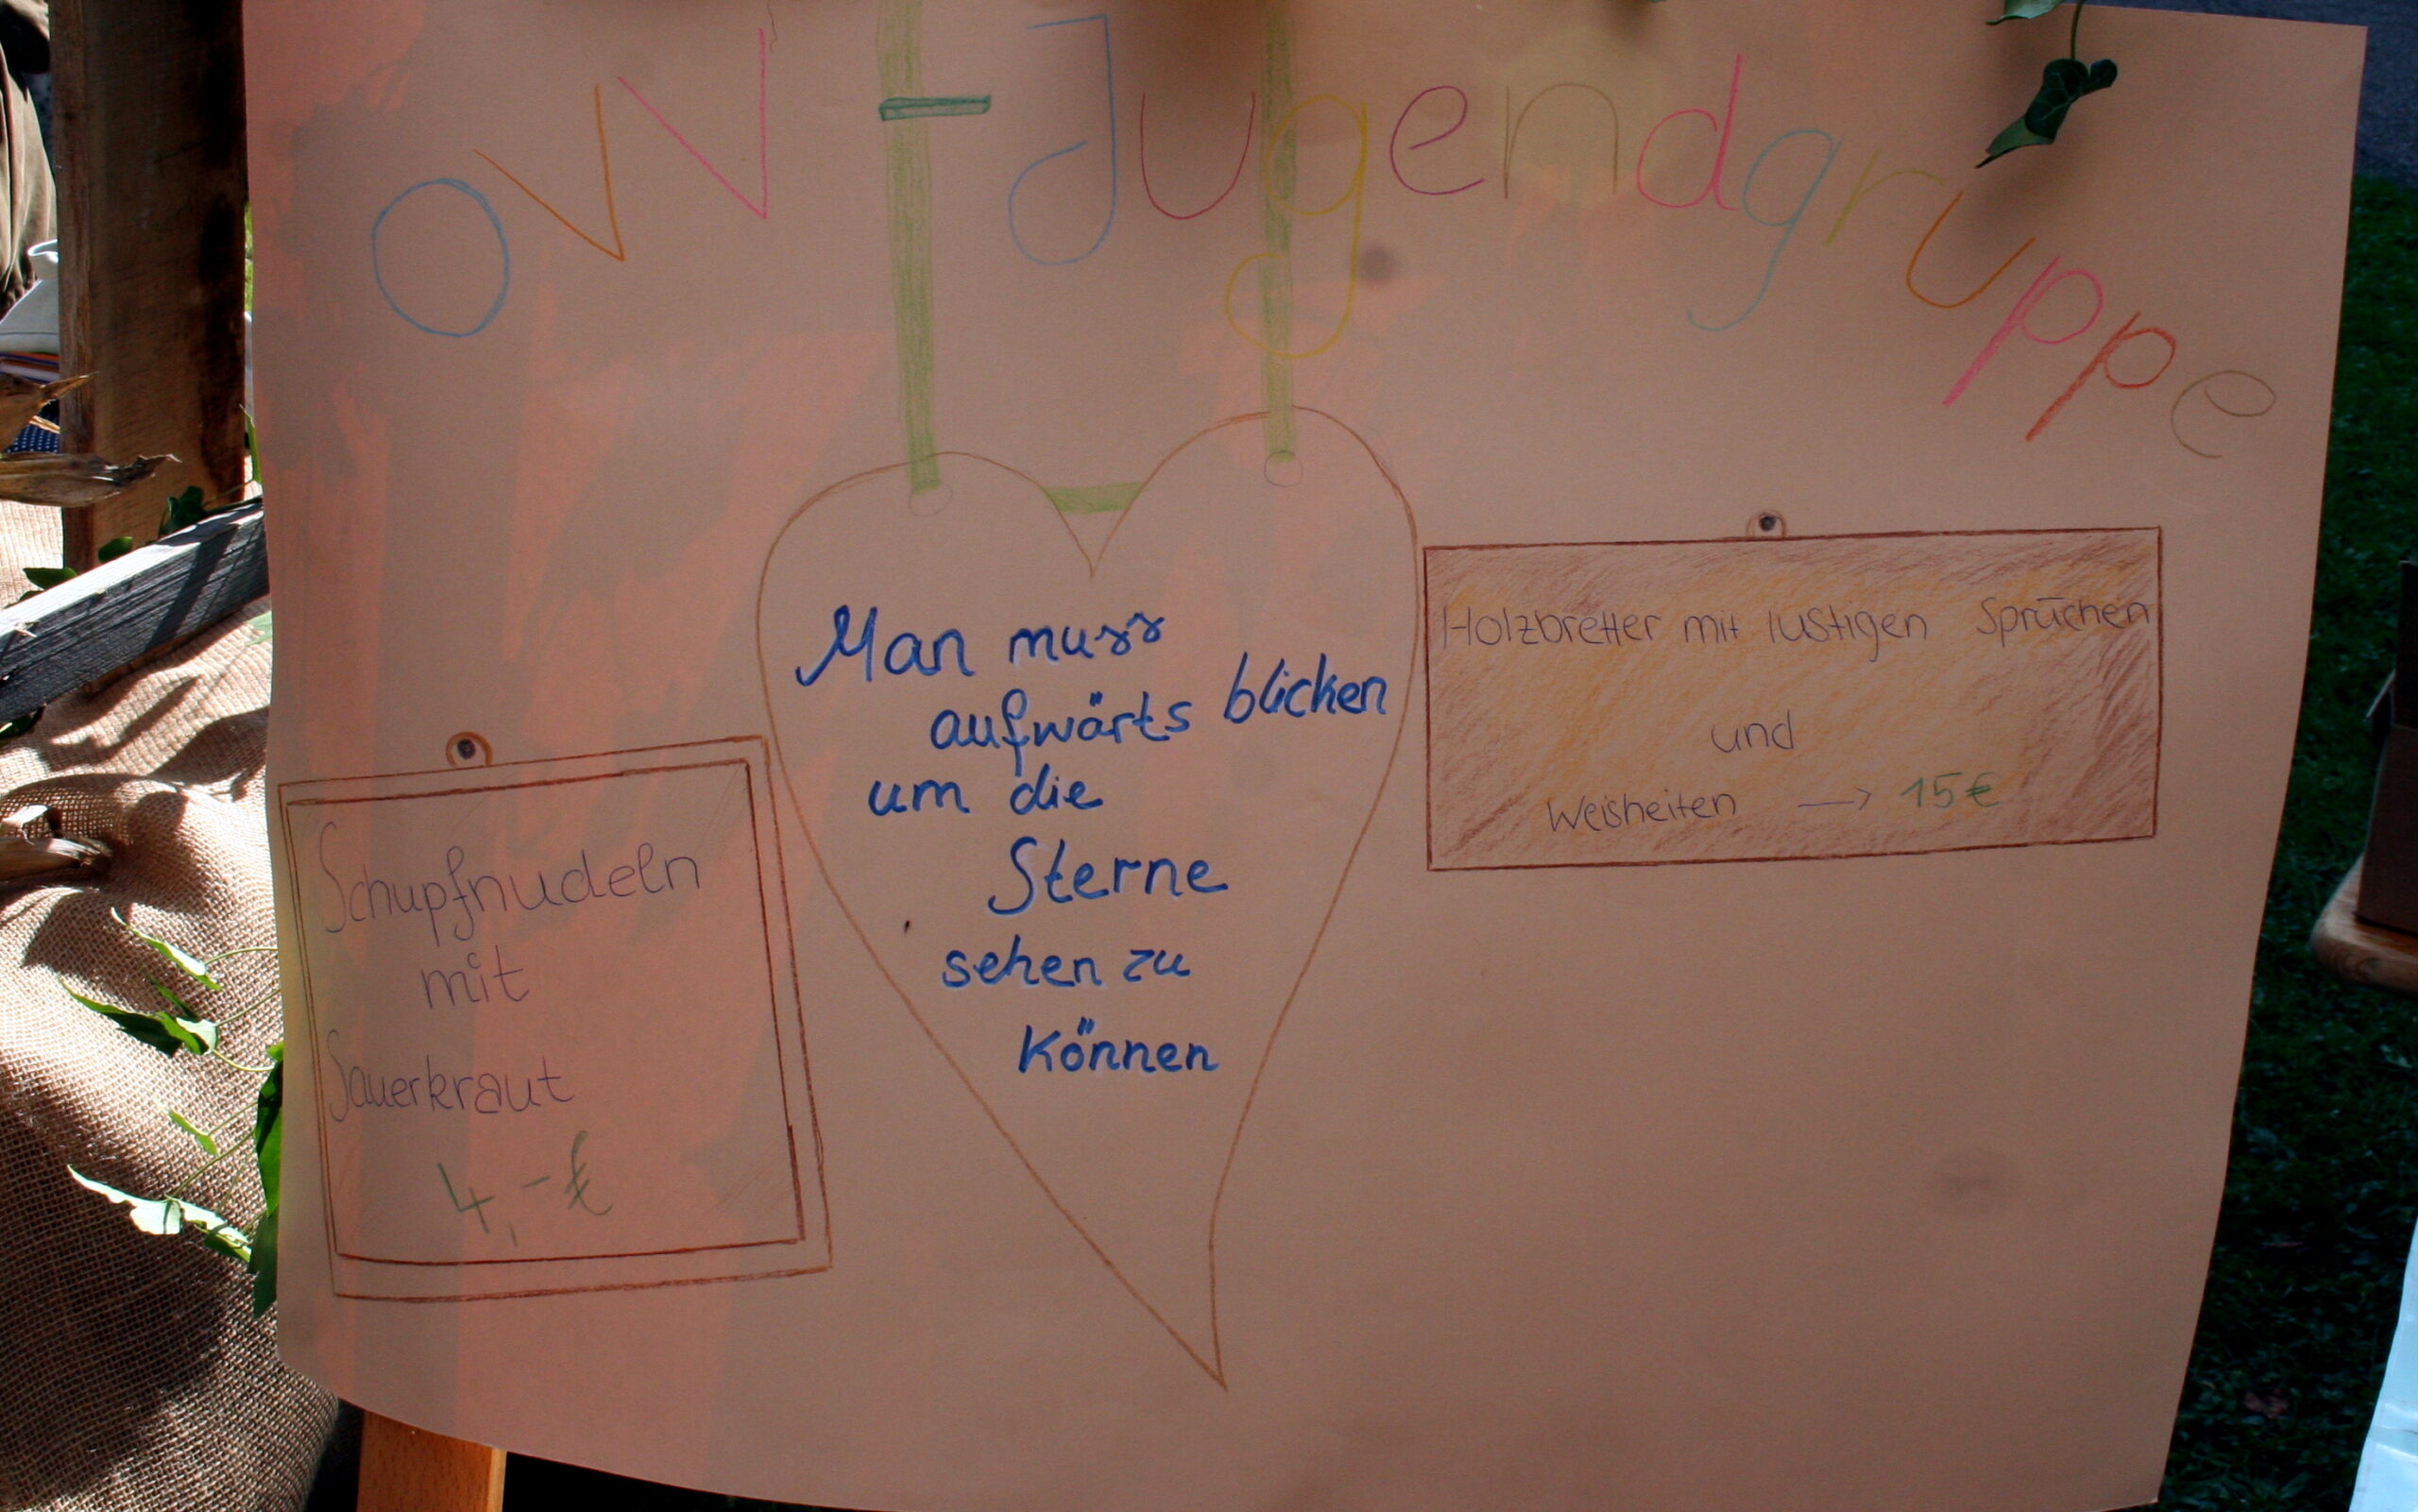 OVV-Jugendgruppe
Man muss
aufwärts blicken
um die
Sterne
sehen zu
können
Holzbretter mit lustigen Sprüchen
und
Weisheiten → 15€
Schupfnudeln
mit
Sauerkraut
4,-€